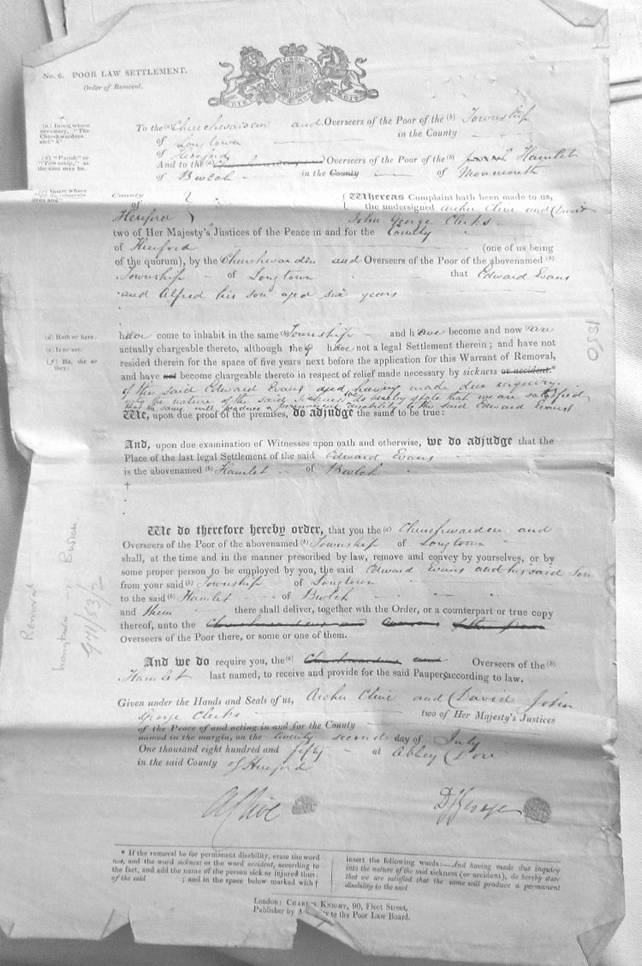 No. 6. POOR LAW SETTLEMENT.
Order of Removal.
(a) Insert where necessary, "The Churchwardens and."
(b) "Parish" or "Township," as the case may be.
To the (a) Churchwarden and Overseers of the Poor of the (b) Township
of Longtown in the County
of Hereford
And to the (a) Overseers of the Poor of the (b) Hamlet
of Bwlch in the County of Monmouth
County
of
Hereford
Whereas Complaint hath been made to us,
the undersigned Archer Clive and David
John George Clerks
two of Her Majesty's Justices of the Peace in and for the County
of Hereford (one of us being
of the quorum), by the Churchwarden and Overseers of the Poor of the abovenamed (b)
Township of Longtown that Edward Evans
and Alfred his son aged six years
(d) Hath or have.
(e) Is or are.
(f) He, she or they.
have come to inhabit in the same Township and have become and now are
actually chargeable thereto, although they have not a legal Settlement therein; and have not
resided therein for the space of five years next before the application for this Warrant of Removal,
and have not become chargeable thereto in respect of relief made necessary by sickness or accident
of the said Edward Evans and having made due inquiry
into the nature of the said sickness do hereby state that we are satisfied
that the same will produce a permanent disability to the said Edward Evans
We, upon due proof of the premises, do adjudge the same to be true:
And, upon due examination of Witnesses upon oath and otherwise, we do adjudge that the
Place of the last legal Settlement of the said Edward Evans
is the abovenamed (b) Hamlet of Bwlch
†
We do therefore hereby order, that you the (a) Churchwarden and
Overseers of the Poor of the abovenamed (b) Township of Longtown
shall, at the time and in the manner prescribed by law, remove and convey by yourselves, or by
some proper person to be employed by you, the said Edward Evans and his said Son
from your said (b) Township of Longtown
to the said (b) Hamlet of Bwlch
and them there shall deliver, together wth the Order, or a counterpart or true copy
thereof, unto the
Overseers of the Poor there, or some or one of them.
And we do require you, the (a) Churchwardens and Overseers of the (b)
Hamlet last named, to receive and provide for the said Paupers according to law.
Given under the Hands and Seals of us, Archer Clive and David John
George Clerks two of Her Majesty's Justices
of the Peace of and acting in and for the County
named in the margin, on the twenty second day of July
One thousand eight hundred and fifty at Abbey Dore
in the said County of Hereford
A Clive
D J George
* If the removal be for permanent disability, erase the word
not, and the word sickness or the word accident, according to
the fact, and add the name of the person sick or injured thus:
of the said ; and in the space below marked with †
insert the following words:—And having made due inquiry
into the nature of the said sickness (or accident), do hereby state
that we are satisfied that the same will produce a permanent
disability to the said
London: CHARLES KNIGHT, 90, Fleet Street,
Publisher by to the Poor Law Board.
1850
Removal
Longtown
Bwlch